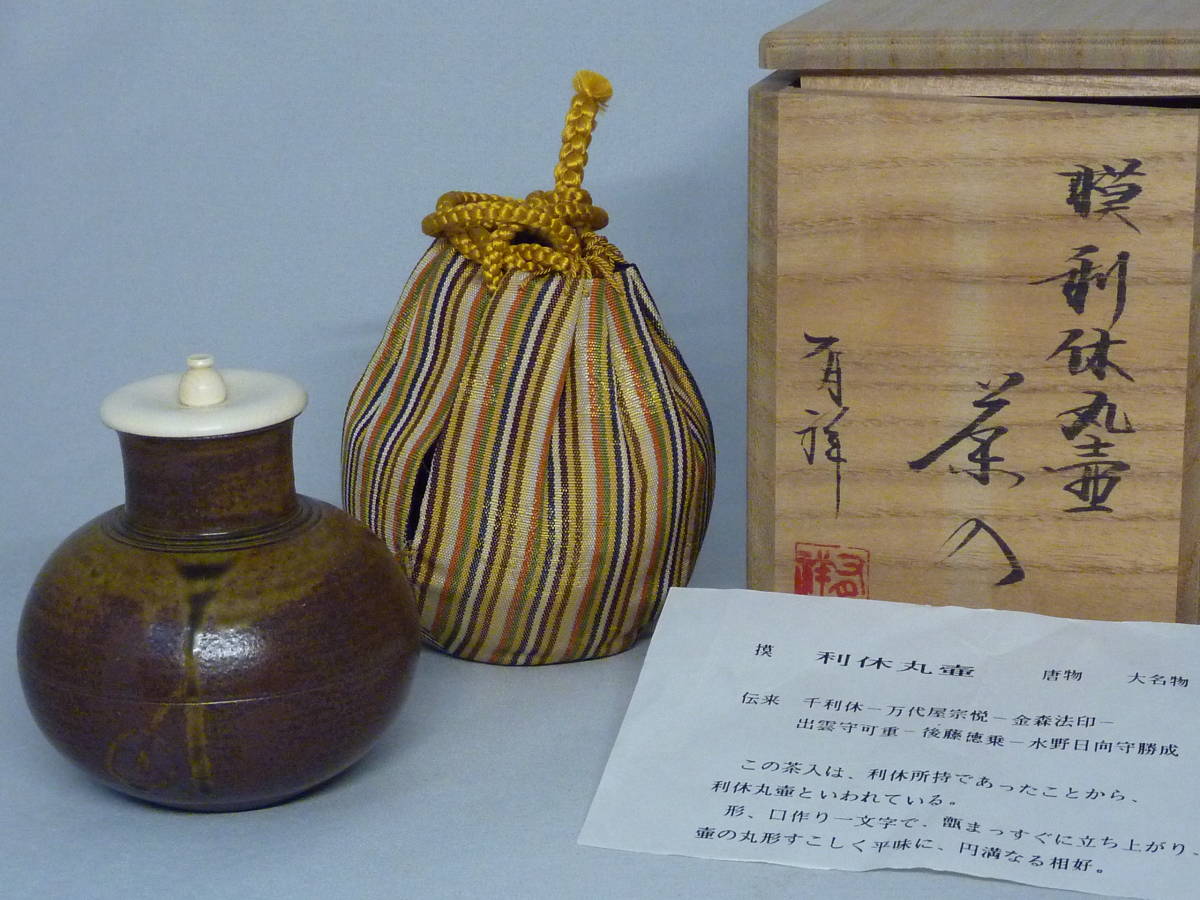 摸利休丸壷
茶入
有祥
摸 利休丸壷 唐物 大名物
伝来 千利休－万代屋宗悦－金森法印－
出雲守可重－後藤徳乗－水野日向守勝成
この茶入は、利休所持であったことから、
利休丸壷といわれている。
形、口作り一文字で、甑まっすぐに立ち上がり、
壷の丸形すこしく平味に、円満なる相好。